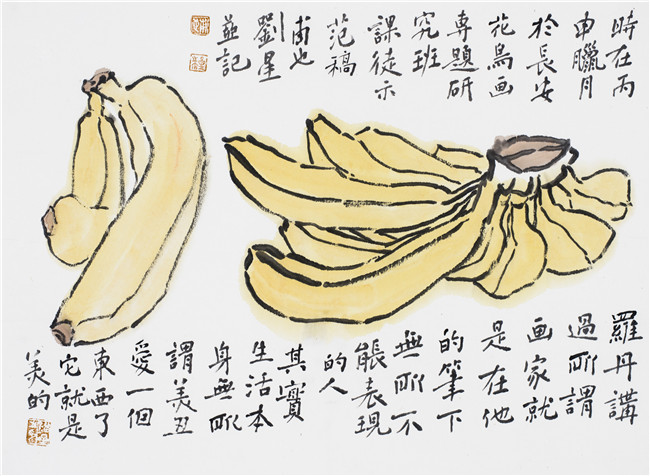 時在丙
申臘月
於長安
花鳥画
專題研
究班
課徒示
范稿
甫也
劉星
並記
羅丹講
過所謂
画家就
是在他
的筆下
無所不
能表現
的人
其實
生活本
身無所
謂美丑
愛一個
東西了
它就是
美的